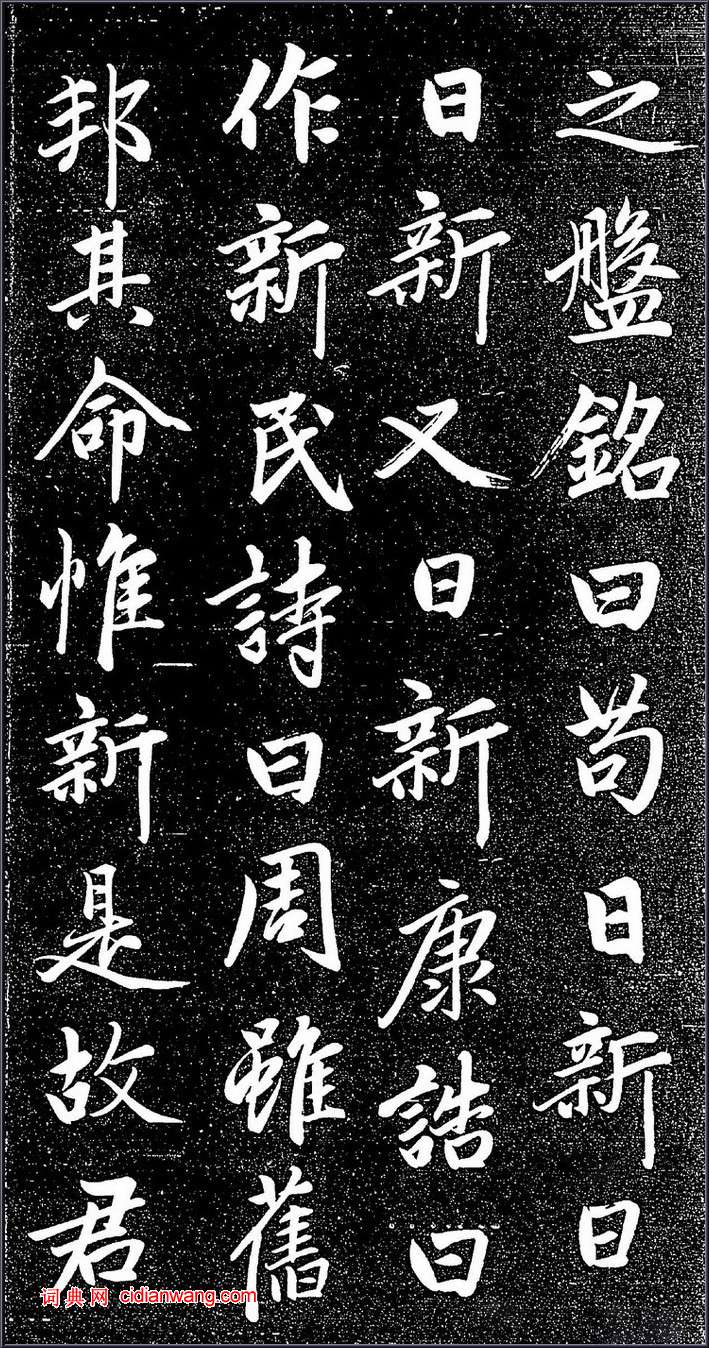 之盤銘曰苟日新日
日新又日新康誥曰
作新民詩曰周雖舊
邦其命惟新是故君
词典网 cidianwang.com